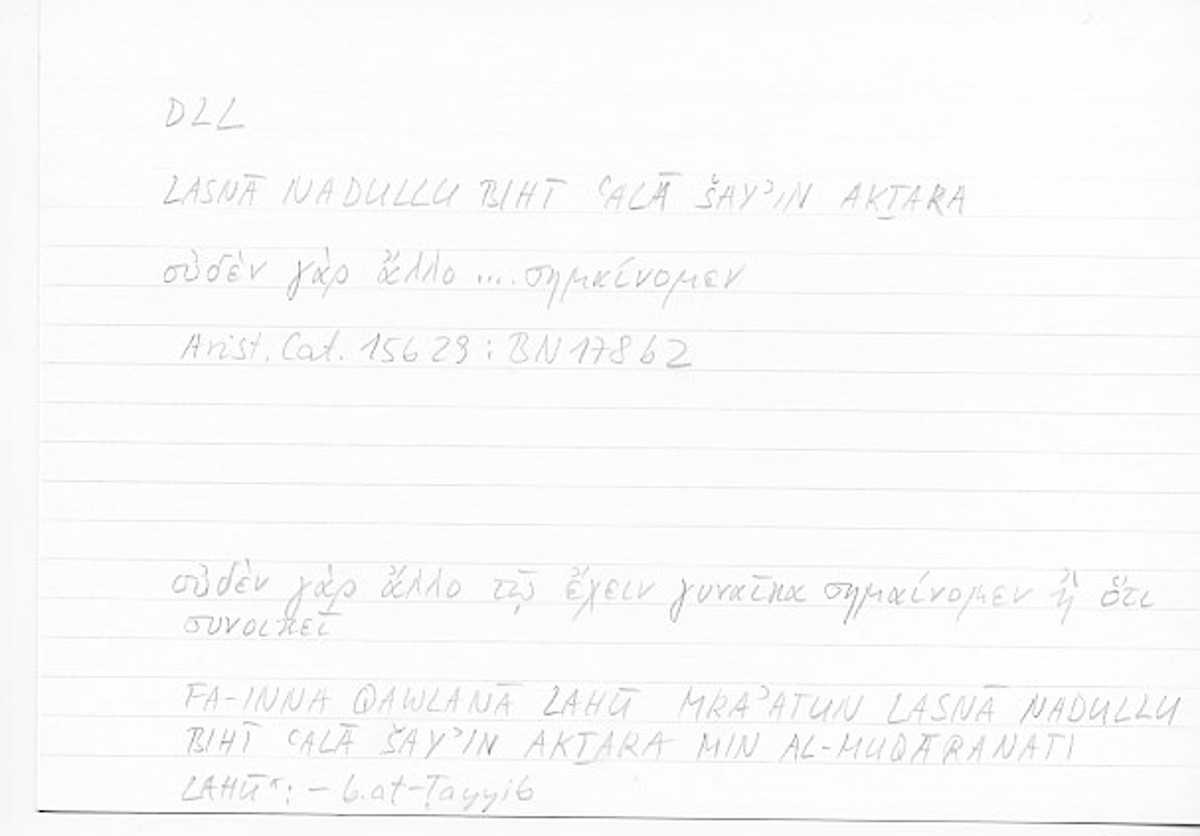 DLL
LASNĀ NADULLU BIHĪ ʿALĀ ŠAYʾIN AKṮARA
οὐδὲν γὰρ ἄλλο .... σημαίνομεν
Arist. Cat. 15b29 : BN178b2
οὐδὲν γὰρ ἄλλο τῷ ἔχειν γυναῖκα σημαίνομεν ἢ ὅτι
συνοικεῖ
FA-INNA QAWLANĀ LAHŪ MRAʾATUN LASNĀ NADULLU
BIHĪ ʿALĀ ŠAYʾIN AKṮARA MIN AL-MUQĀRANATI
LAHŪ : – b.at-Ṭayyib